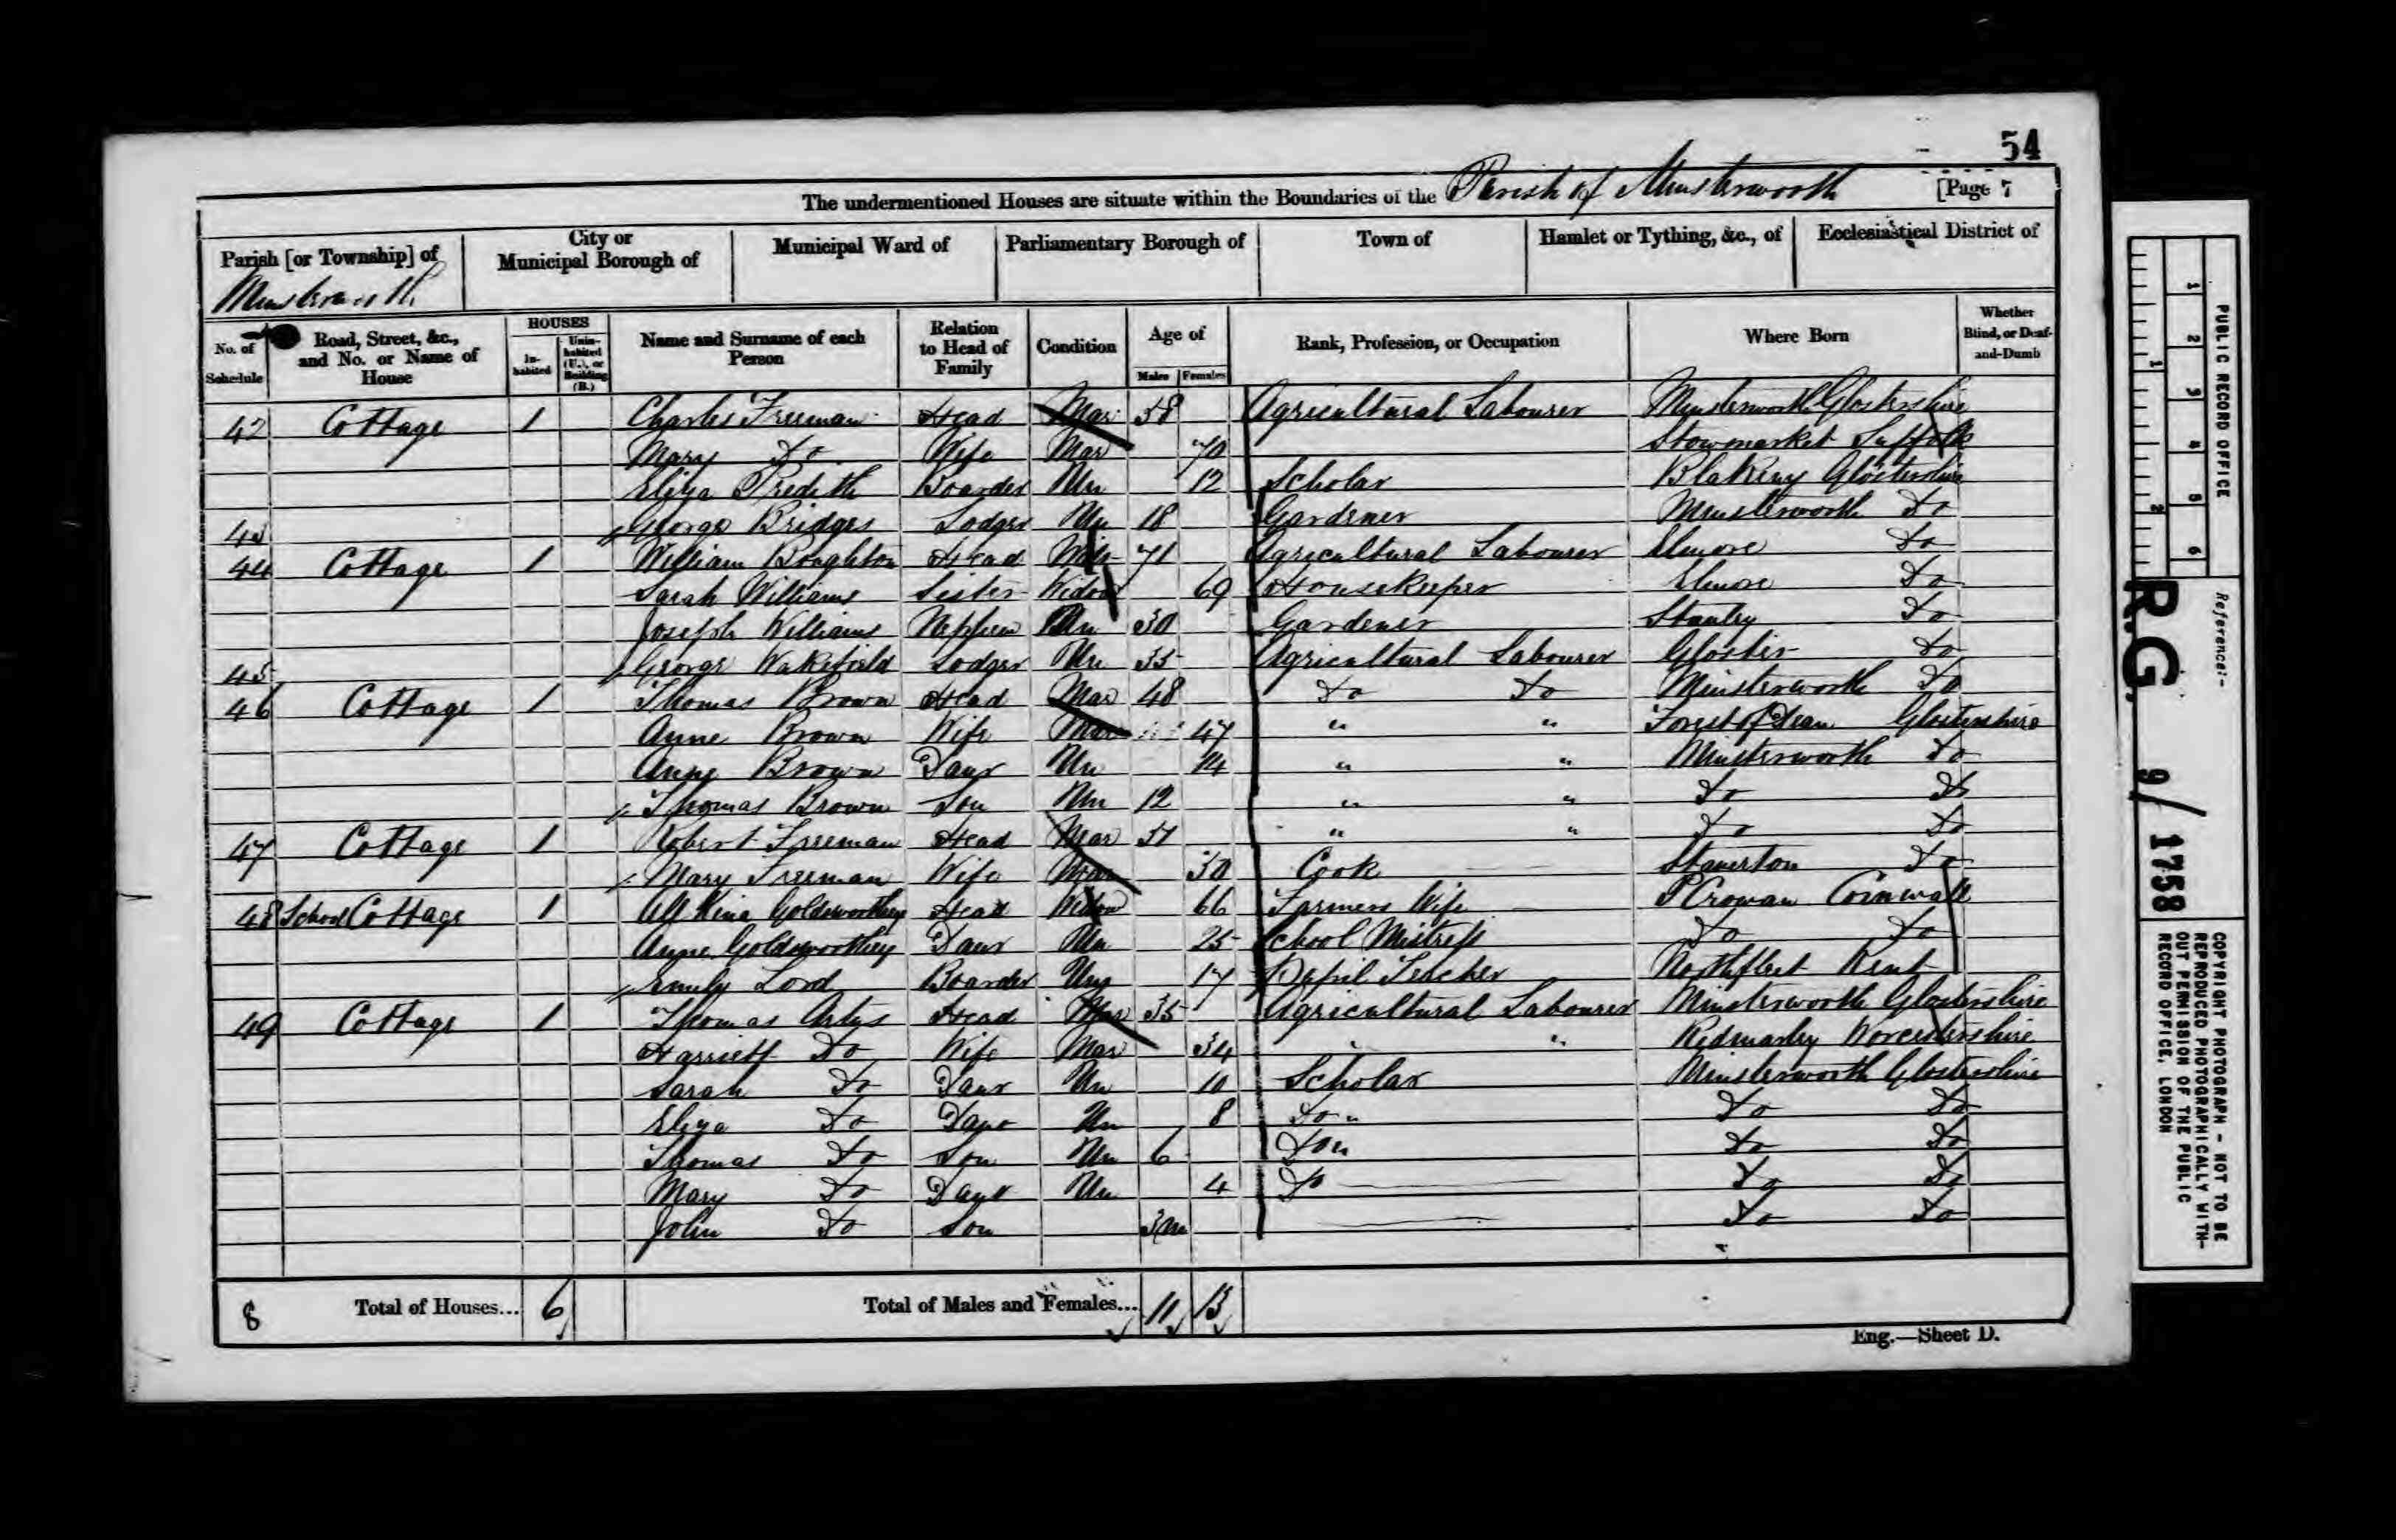 54
The undermentioned Houses are situate within the Boundaries of the Parish of Minsterworth [Page 7
Parish [or Township] of City or Municipal Borough of Municipal Ward of Parliamentary Borough of Town of Hamlet or Tything, &c., of Ecclesiastical District of
Minsterworth
No. of Schedule Road, Street, &c., and No. or Name of House HOUSES Inhabited Uninhabited (U.), or Building (B.) Name and Surname of each Person Relation to Head of Family Condition Age of Males Females Rank, Profession, or Occupation Where Born Whether Blind, or Deaf-and-Dumb
42 Cottage 1 Charles Freeman Head Mar 38 Agricultural Labourer Minsterworth Glostershire
Mary Do Wife Mar 70 Stowmarket Suffolk
Eliza Predith Boarder Un 12 Scholar Blakeny Glostershire
43 George Bridges Lodger Un 18 Gardener Minsterworth Do
44 Cottage 1 William Boughton Head 71 Agricultural Labourer Elmore Do
Sarah Williams Sister Widow 69 Housekeeper Elmore Do
Joseph Williams Nephew Un 30 Gardener Stanley Do
45 George Wakefield Lodger Un 35 Agricultural Labourer Gloster Do
46 Cottage 1 Thomas Brown Head Mar 48 Do Do Minsterworth Do
Anne Brown Wife Mar 47 " " Forest of Dean Glostershire
Anne Brown Daur Un 14 " " Minsterworth Do
Thomas Brown Son Un 12 " " Do Do
47 Cottage 1 Robert Freeman Head Mar 31 " " Do Do
Mary Freeman Wife Mar 30 Cook Staverton Do
48 School Cottage 1 Goldsworthey Head Widow 66 Farmers Wife Crowan Cornwall
Anne Goldsworthey Daur Un 25 School Mistress Do Do
Emily Lord Boarder Un 17 Pupil Teacher Northfleet Kent
49 Cottage 1 Thomas Artus Head Mar 35 Agricultural Labourer Minsterworth Glostershire
Harriett Do Wife Mar 34 " " Redmarley Worcestershire
Sarah Do Daur Un 10 Scholar Minsterworth Glostershire
Eliza Do Daur Un 8 Do " Do Do
Thomas Do Son Un 6 Do " Do Do
Mary Do Daur Un 4 Do Do Do
John Do Son 3m Do Do
8 Total of Houses... 6 Total of Males and Females... 11 13
Eng.—Sheet D.
PUBLIC RECORD OFFICE
1 2 3 4 5 6
1 2
Reference:-
R.G. 9/1758
COPYRIGHT PHOTOGRAPH - NOT TO BE
REPRODUCED PHOTOGRAPHICALLY WITH-
OUT PERMISSION OF THE PUBLIC
RECORD OFFICE, LONDON